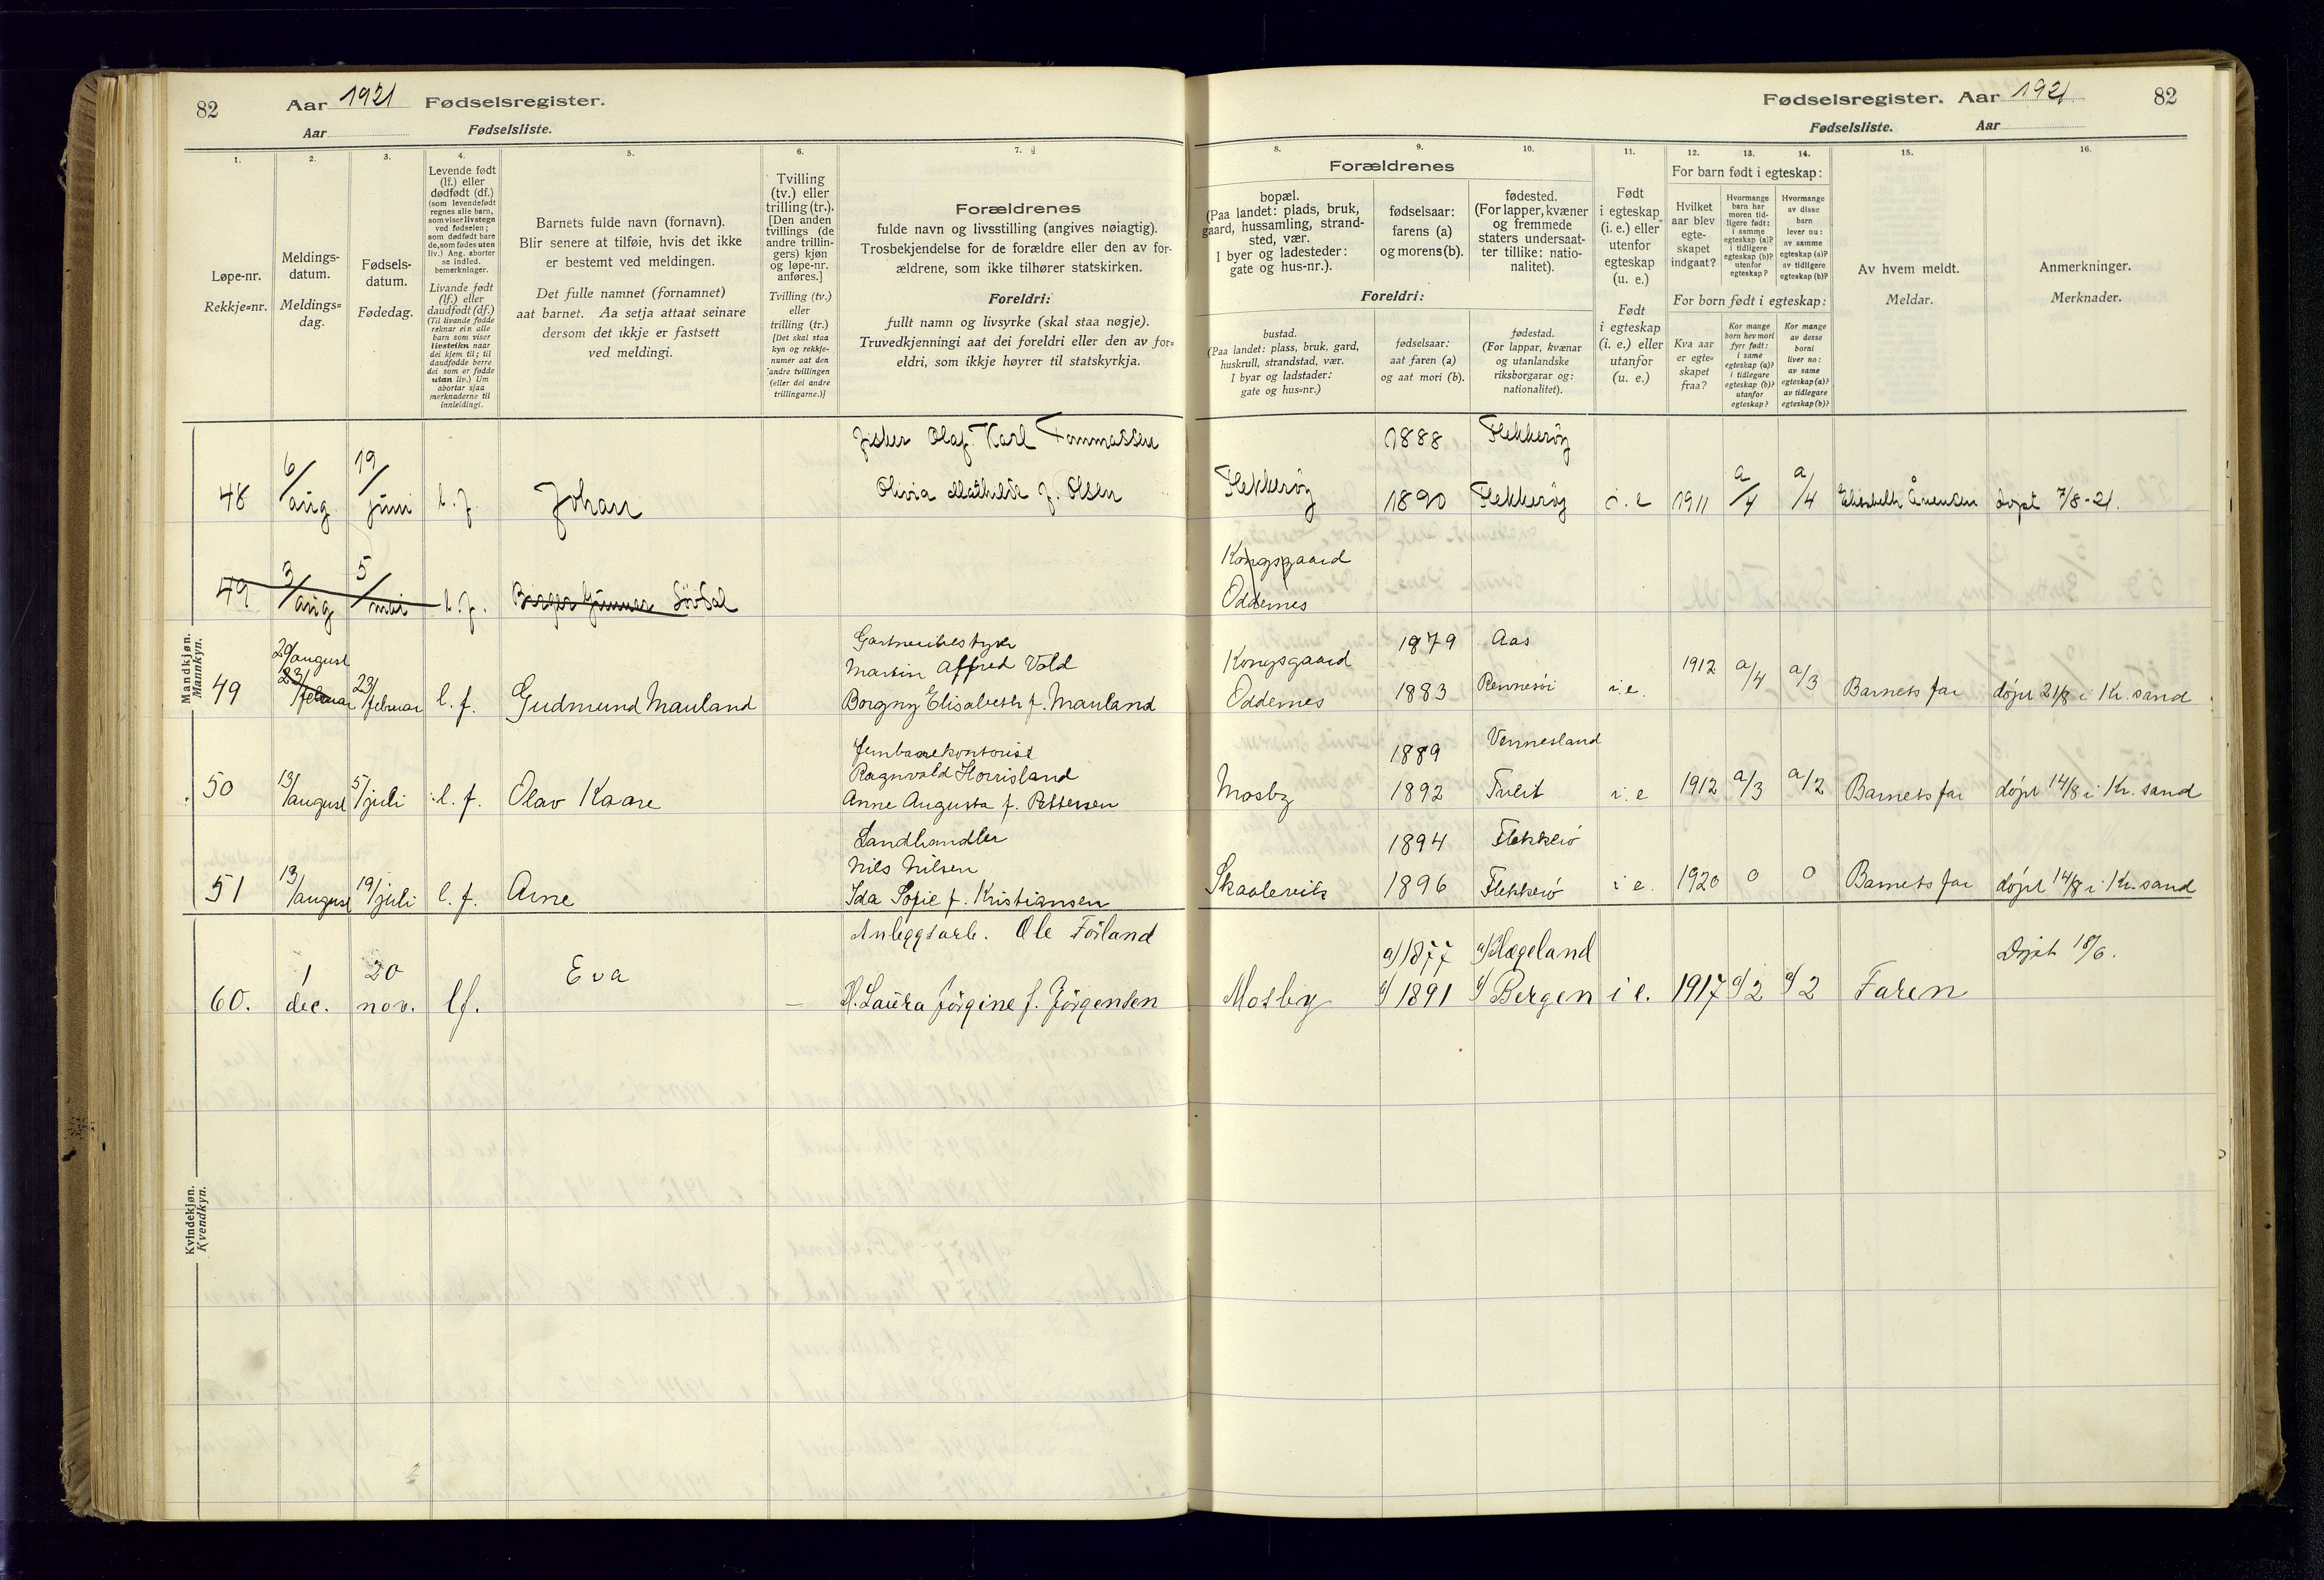 82 Aar 1921 Fødselsregister.
Aar Fødselsliste.
1.
2.
3.
4.
5.
6.
7.
Løpe-nr.
Rekkje=nr.
Meldings-
datum.
Meldings=
dag.
Fødsels-
datum.
Fødedag.
Levende født
(lf.) eller
dødfødt (df.)
(som levendefødt
regnes alle barn,
som viser livstegn
ved fødselen;
som dødfødt bare
de, som fødes uten
liv.) Ang. aborter
se indled.
bemerkninger.
Livande født
(lf.) eller
daudfødt (df.)
(Til livande fødde
reknar ein alle
barn som viser
livsteikn naar
dei kjem til; til
daudfødde berre
dei som er fødde
utan liv.) Um
abortar sjaa
merknaderne til
innleidingi.
Barnets fulde navn (fornavn).
Blir senere at tilføie, hvis det ikke
er bestemt ved meldingen.
Det fulle namnet (fornamnet)
aat barnet. Aa setja attaat seinare
dersom det ikkje er fastsett
ved meldingi.
Tvilling
(tv.) eller
trilling (tr.).
[Den anden
tvillings (de
andre trillin-
gers) kjøn
og løpe-nr.
anføres.]
Tvilling (tv.)
eller
trilling (tr.)
[Det skal staa
kyn og rekkje-
numer aat den
andre tvillingen
(eller dei andre
trillingarne.)]
Forældrenes
fulde navn og livsstilling (angives nøiagtig).
Trosbekjendelse for de forældre eller den av for-
ældrene, som ikke tilhører statskirken.
Foreldri:
fullt namn og livsyrke (skal staa nøgje).
Truvedkjenningi aat dei foreldri eller den av for=
eldri, som ikkje høyrer til statskyrkja.
Mandkjøn.
Mannkyn.
48 6/aug 19/juni l. f. Johan
Fisker Olaf Karl Tommassen
Olivia Mathilde f. Olsen
49 3/aug 5/mai l. f. Birger Gunnar Sövdal
49 29/august 23/februar 23/februar l. f. Gudmund Mauland
Gartneribestyrer
Martin Alfred Vold
Borgny Elisabeth f. Mauland
50 13/august 5/juli l. f. Olav Kaare
Jernbanekontorist
Ragnvald Horrisland
Anne Augusta f. Pettersen
51 13/august 19/juli l. f. Arne
Landhandler
Nils Nilsen
Ida Sofie f. Kristiansen
Kvindekjøn.
Kvendkyn.
60. 1 dec. 20 nov. lf. Eva —
Anleggsarb. Ole Förland
H. Laura Jörgine f. Jörgensen
Fødselsregister. Aar 1921 82
Fødselsliste. Aar
8.
9.
10.
11.
12.
13.
14.
15.
16.
Forældrenes
bopæl.
(Paa landet: plads, bruk,
gaard, hussamling, strand-
sted, vær.
I byer og ladesteder:
gate og hus-nr.).
fødselsaar:
farens (a)
og morens (b).
fødested.
(For lapper, kvæner
og fremmede
staters undersaat-
ter tillike: natio-
nalitet).
Foreldri:
bustad.
(Paa landet: plass, bruk, gard,
huskrull, strandstad, vær.
I byar og ladstader:
gate og hus=nr.)
fødselsaar:
aat faren (a)
og aat mori (b).
fødestad.
(For lappar, kvænar
og utanlandske
riksborgarar og:
nationalitet).
Født
i egteskap
(i. e.) eller
utenfor
egteskap
(u. e.)
Født
i egteskap
(i. e.) eller
utanfor
(u. e.)
For barn født i egteskap:
Hvilket
aar blev
egte-
skapet
indgaat?
Hvormange
barn har
moren tid-
ligere født:
i samme
egteskap (a)?
i tidligere
egteskap (b)?
utenfor
egteskap?
Hvormange
av disse
barn
lever nu:
av samme
egteskap (a)?
av tidligere
egteskap (b)?
For born født i egteskap:
Kva aar
er egte=
skapet
fraa?
Kor mange
born hev mori
fyrr født:
i same
egteskap (a)?
i tidlegare
egteskap (b)?
utanfor
egteskap?
Kor mange
av desse
borni
liver no:
av same
egteskap (a)?
av tidlegare
egteskap (b)?
Av hvem meldt.
Meldar.
Anmerkninger.
Merknader.
1888 Flekkerøy
Flekkerøy 1890 Flekkerøy i. e 1911 a/4 a/4 Elisabeth døpt 7/8-21.
Kongsgaard
Oddernes
1879 Aas
Kongsgaard
Oddernes 1883 Rennesöi i. e. 1912 a/4 a/3 Barnets far døpt 21/8 i Kr. sand
1889 Vennesland
Mosby 1892 Tveit i. e 1912 a/3 a/2 Barnets far døpt 14/8 i Kr. sand
1894 Flekkerö
Skaalevik 1896 Flekkerö i e. 1920 0 0 Barnets far døpt 14/8 i Kr. sand
a) 1877 a) Hægeland
Mosby 1891 Bergen i e. 1917 a/2 a/2 Faren
Döpt 18/6.